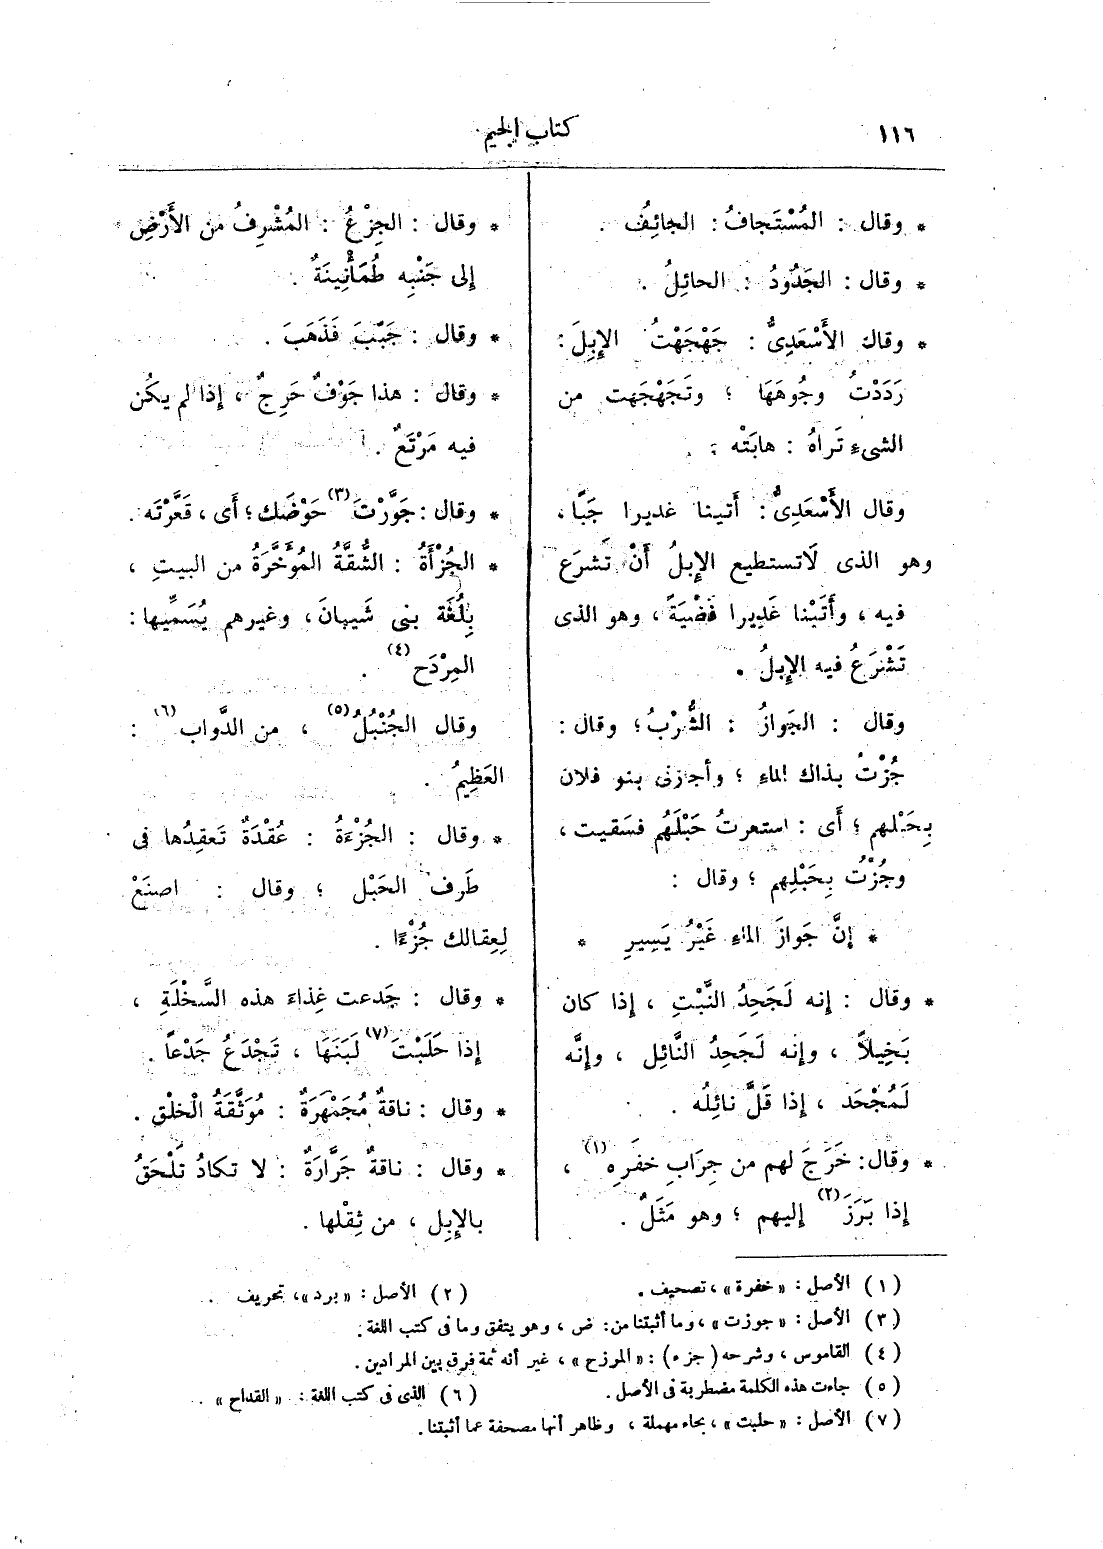 ١١٦
كتاب الجيم
* وقال : المُسْتَجافُ : الجائِفُ .
* وقال : الجَدُودُ : الحائِلُ .
* وقال الأَسْعَدِىُّ : جَهْجَهْتُ الإِبِلَ :
رَدَدْتُ وجُوهَهَا ؛ وتَجَهْجَهت من
الشىءِ تَراهُ : هابَتْه .
وقال الأَسْعَدِىُّ : أَتينا غديرا جَبًّا ،
وهو الذى لَاتستطيع الإِبلُ أَنْ تَشرَع
فيه ، وأَتَيْنا غَدِيرا فَضْيَةً ، وهو الذى
تَشْرَعُ فيه الإِبلُ .
وقال : الجَوازُ : الشُّرْبُ ؛ وقال :
جُزْتُ بذاك الماءِ ؛ وأَجازنى بنو فلان
بِحَبْلهم ؛ أَى : استعرتُ حَبْلَهُم فسَقيت ،
وجُزْتُ بِحَبْلِهم ؛ وقال :
* إنَّ جَوازَ الماءِ غَيْرُ يَسِيرِ *
* وقال : إنه لَجَحِدُ النَّبْتِ ، إذا كان
بَخِيلاً ، وإنه لَجَحِدُ النَّائِل ، وإنَّه
لَمُجْحَد ، إذا قَلَّ نائِلُه .
* وقال : خَرَجَ لهم من جِرَابِ خفَرِه (١) ،
إذا بَرَزَ (٢) إليهم ؛ وهو مَثَلٌ .
* وقال : الجِزْعُ : المُشْرِفُ من الأَرْضِ
إلى جَنْبِه طُمَأْنِينَةٌ .
* وقال : جَبَّبَ فَذَهَبَ .
* وقال : هذا جَوْفٌ حَرِجٌ ، إذا لم يكُن
فيه مَرْتَعٌ .
* وقال : جَوَّرْتَ (٣) حَوْضَك ؛ أَى ، قَعَّرْتَه .
* الجُزْأَةُ : الشُّقَّةُ المُوَخَّرَةُ من البيتِ ،
بِلُغَة بنى شَيبانَ ، وغيرهم يُسَمِّيها :
المِرْدَح (٤) .
وقال الجُنْبُلُ (٥) ، من الدَّواب (٦) :
العَظِيمُ .
* وقال : الجُزْءَةُ : عُقْدَةٌ تَعقِدُها فى
طَرف الحَبْل ؛ وقال : اصنَعْ
لِعِقالك جُزْءًا .
* وقال : جَدعت غِذاءَ هذه السَّخْلَةِ ،
إذا حَلَبْتَ (٧) لَبَنَهَا ، تَجْدَعُ جَدْعاً .
* وقال : ناقةٌ مُجَمْهَرَةٌ : مُوَثَّقَةُ الْخلْق .
* وقال : ناقةٌ جَرَّارَةٌ : لا تكادُ تلْحَقُ
بالإِبِل ، من ثِقْلها .
(١) الأصل : « خفرة » ، تصحيف . (٢) الأصل : « برد » ، تحريف .
(٣) الأصل : « جوزت » ، وما أثبتنا من : ض ، وهو يتفق وما فى كتب اللغة .
(٤) القاموس ، وشرحه ( جزء ) : « المرزح » ، غير أنه ثمة فرق بين المرادين .
(٥) جاءت هذه الكلمة مضطربة فى الأصل . (٦) الذى فى كتب اللغة : « القداح » .
(٧) الأصل : « حلبت » ، بحاء مهملة ، وظاهر أنها مصحفة عما أثبتنا .